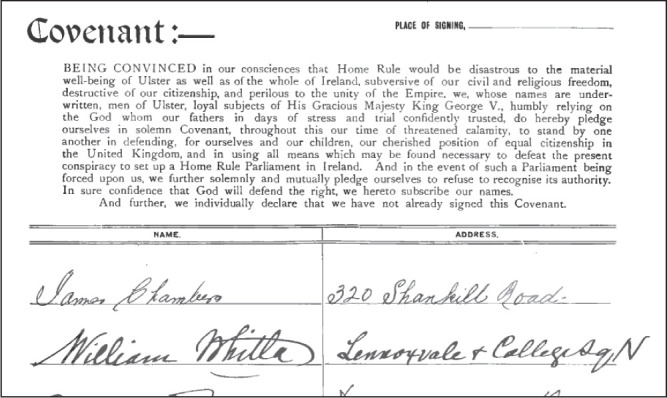 Covenant:—
PLACE OF SIGNING,
BEING CONVINCED in our consciences that Home Rule would be disastrous to the material
well-being of Ulster as well as of the whole of Ireland, subversive of our civil and religious freedom,
destructive of our citizenship, and perilous to the unity of the Empire, we, whose names are under-
written, men of Ulster, loyal subjects of His Gracious Majesty King George V., humbly relying on
the God whom our fathers in days of stress and trial confidently trusted, do hereby pledge
ourselves in solemn Covenant, throughout this our time of threatened calamity, to stand by one
another in defending, for ourselves and our children, our cherished position of equal citizenship in
the United Kingdom, and in using all means which may be found necessary to defeat the present
conspiracy to set up a Home Rule Parliament in Ireland. And in the event of such a Parliament being
forced upon us, we further solemnly and mutually pledge ourselves to refuse to recognise its authority.
In sure confidence that God will defend the right, we hereto subscribe our names.
And further, we individually declare that we have not already signed this Covenant.
NAME. ADDRESS.
James Chambers 320 Shankill Road-
William Whitla Lennoxvale & College Sq, N